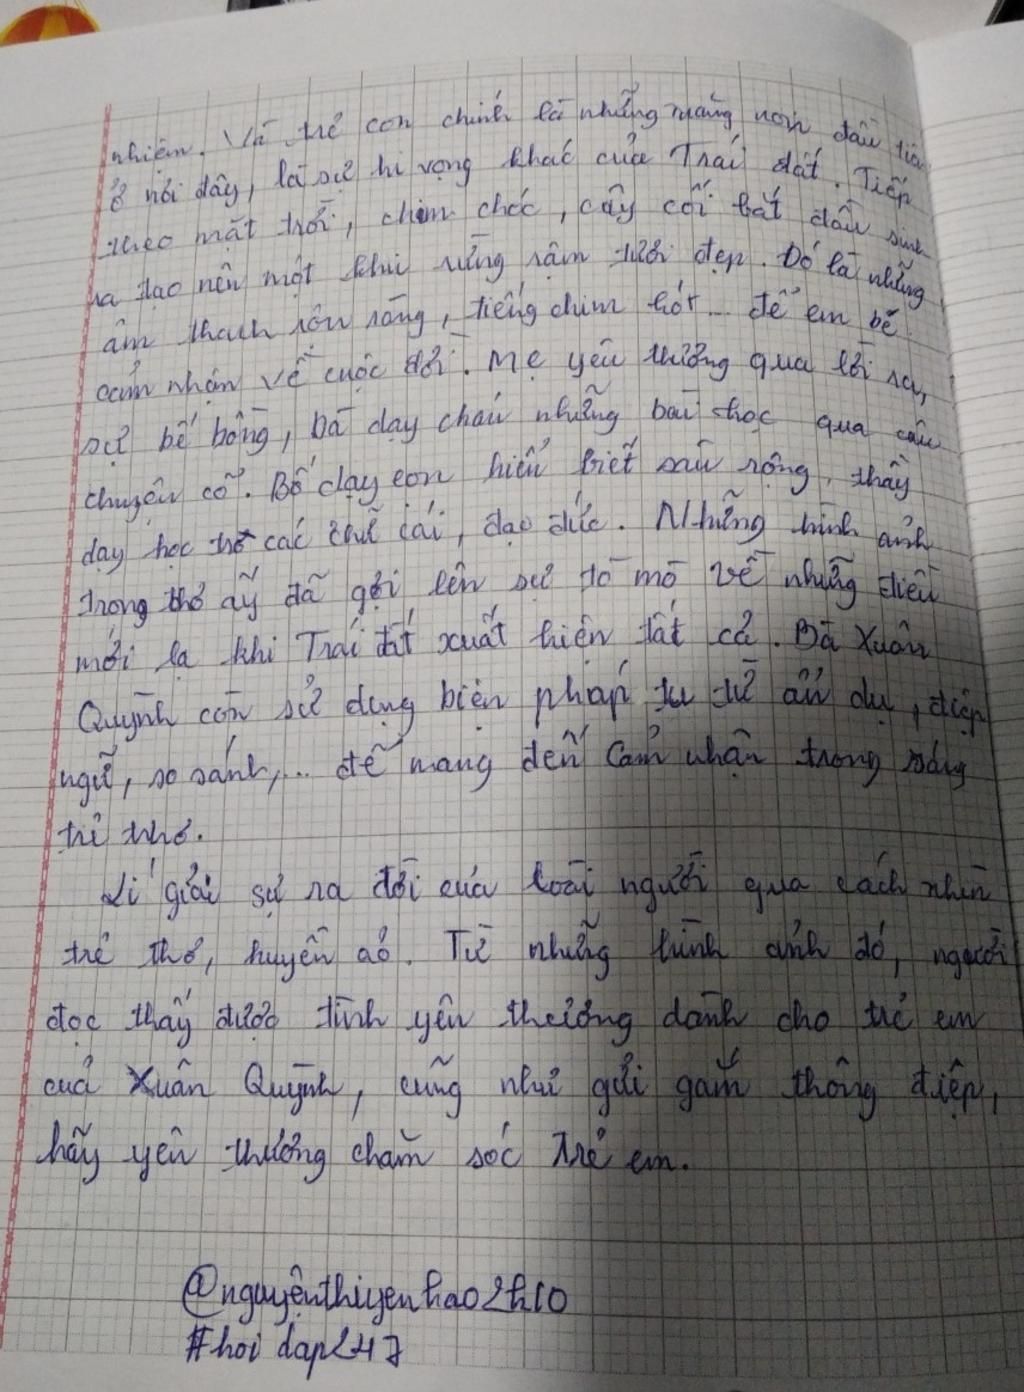 nhiên. Và trẻ con chính là những măng non đầu tiên
ở nơi đây, là sự hi vọng khác của Trái đất. Tiếp
theo mặt trời, chim chóc, cây cối bắt đầu sinh
ra tạo nên một khu rừng rậm tươi đẹp. Đó là những
âm thanh rộn ràng, tiếng chim hót... để em bé
cảm nhận về cuộc đời. Mẹ yêu thương qua lời ru,
sự bế bồng, bà dạy cháu những bài học qua câu
chuyện cổ. Bố dạy con hiểu biết sâu rộng, thầy
dạy học trò các chữ cái, đạo đức. Những hình ảnh
trong thơ ấy đã gợi lên sự tò mò về những điều
mới lạ khi Trái đất xuất hiện tất cả. Bà Xuân
Quỳnh còn sử dụng biện pháp tu từ ẩn dụ, điệp
ngữ, so sánh,... để mang đến cảm nhận trong sáng
trẻ thơ.
Lí giải sự ra đời của loài người qua cách nhìn
trẻ thơ, huyền ảo. Từ những hình ảnh đó, người
đọc thấy được tình yêu thương dành cho trẻ em
của Xuân Quỳnh, cũng như gửi gắm thông điệp,
hãy yêu thương chăm sóc trẻ em.
@nguyênthiyenhao2k10
#hoi dap247